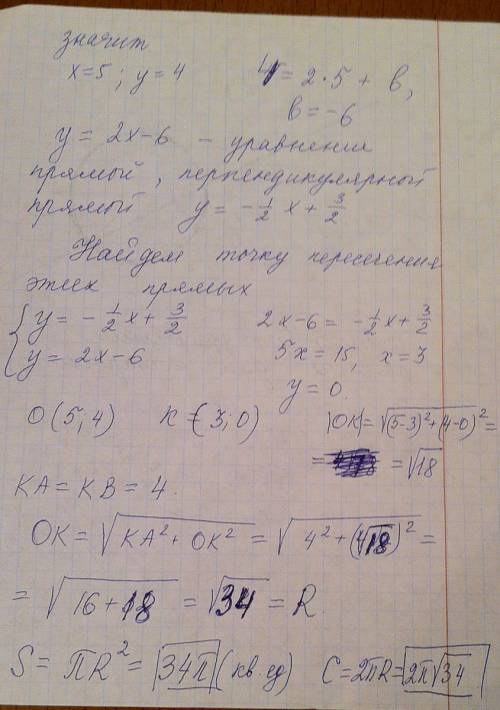 значит
x=5; y=4    4=2·5+b,
b=-6
y=2x-6 - уравнение
прямый, перпендикулярной
прямый y=-1/2x+3/2
Найдем точку пересечения
этих прямых
{y=-1/2x+3/2    2x-6=-1/2x+3/2
y=2x-6    5x=15, x=3
y=0.
O(5;4)    K=(3;0)    |OK|=√((5-3)²+(4-0)²)=
=√18
KA=KB=4.
OK=√(KA²+OK²)=√(4²+(√18)²)=
=√(16+18)=√34=R.
S=πR²=34π(кв.ед)    C=2πR=2π√34